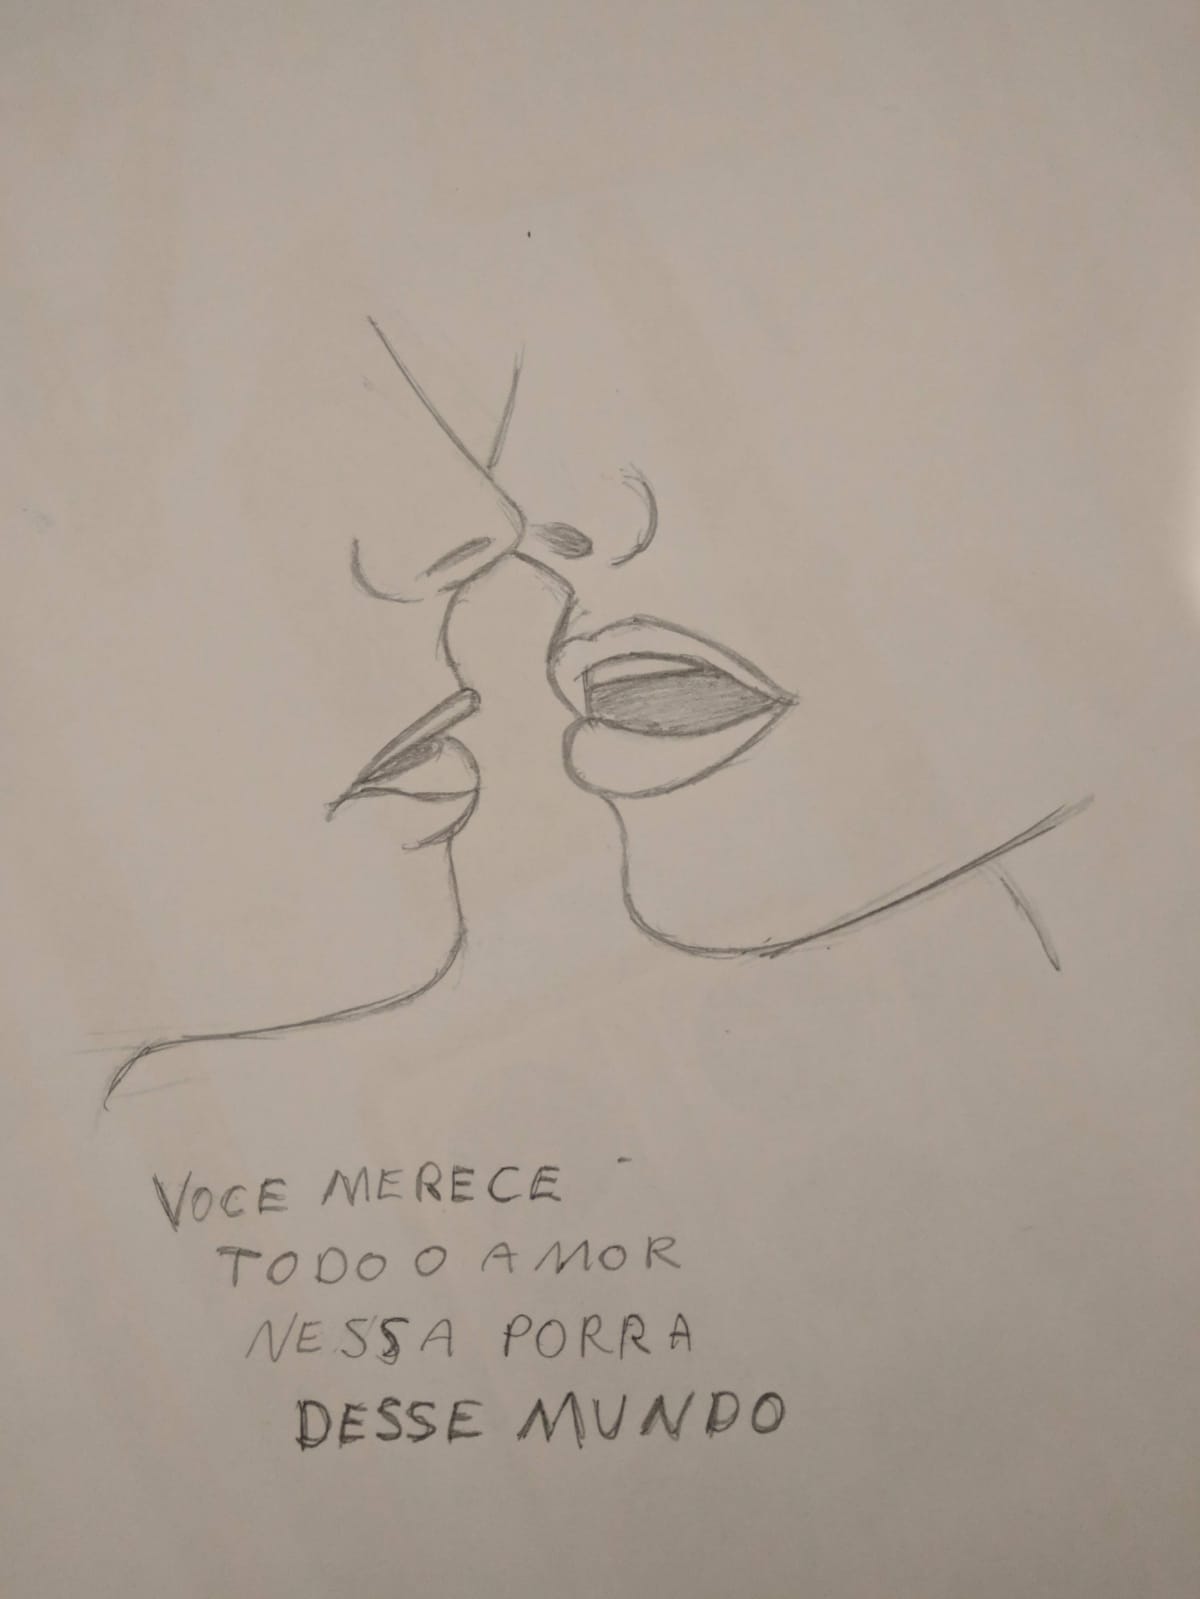 VOCE MERECE
TODO O AMOR
NESSA PORRA
DESSE MUNDO